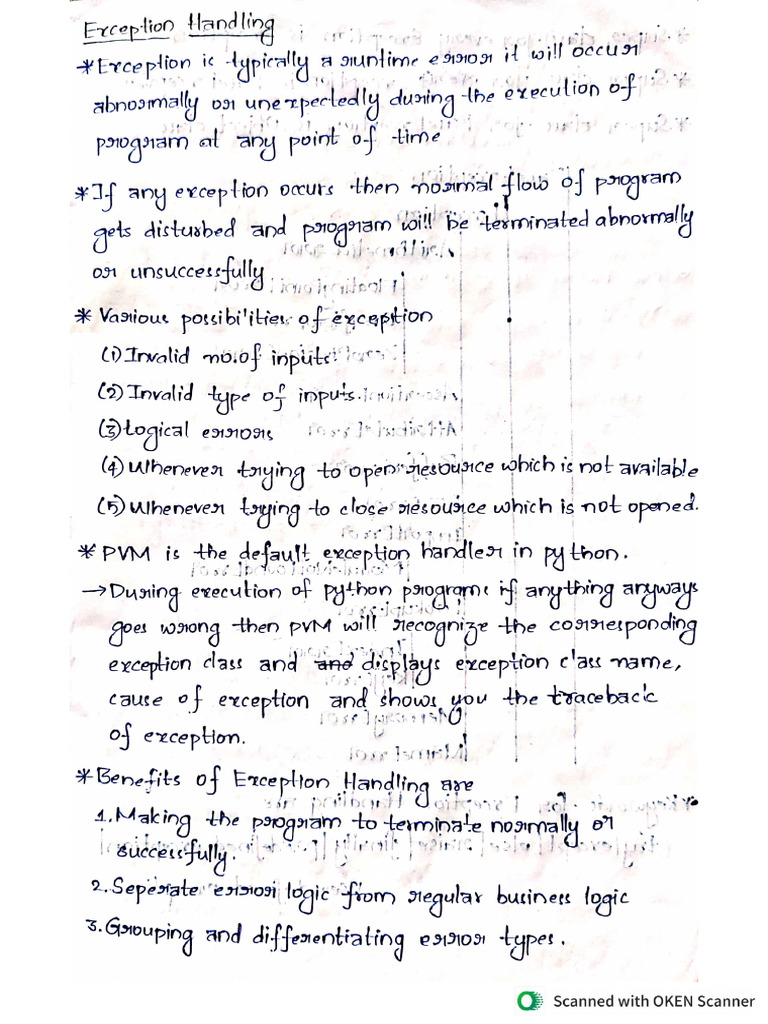 Exception Handling
*Exception is typically a runtime error it will occur
abnormally or unexpectedly during the execution of
program at any point of time
*If any exception occurs then normal flow of program
gets disturbed and program will be terminated abnormally
or unsuccessfully
* Various possibilities of exception
(1) Invalid no.of inputs
(2) Invalid type of inputs.
(3) Logical errors
(4) Whenever trying to open resource which is not available
(5) Whenever trying to close resource which is not opened.
* PVM is the default exception handler in python.
→ During execution of python program if anything anyways
goes wrong then PVM will recognize the corresponding
exception class and and displays exception class name,
cause of exception and shows you the traceback
of exception.
*Benefits of Exception Handling are
1. Making the program to terminate normally or
successfully.
2. Seperate error logic from regular business logic
3. Grouping and differentiating error types.
Scanned with OKEN Scanner